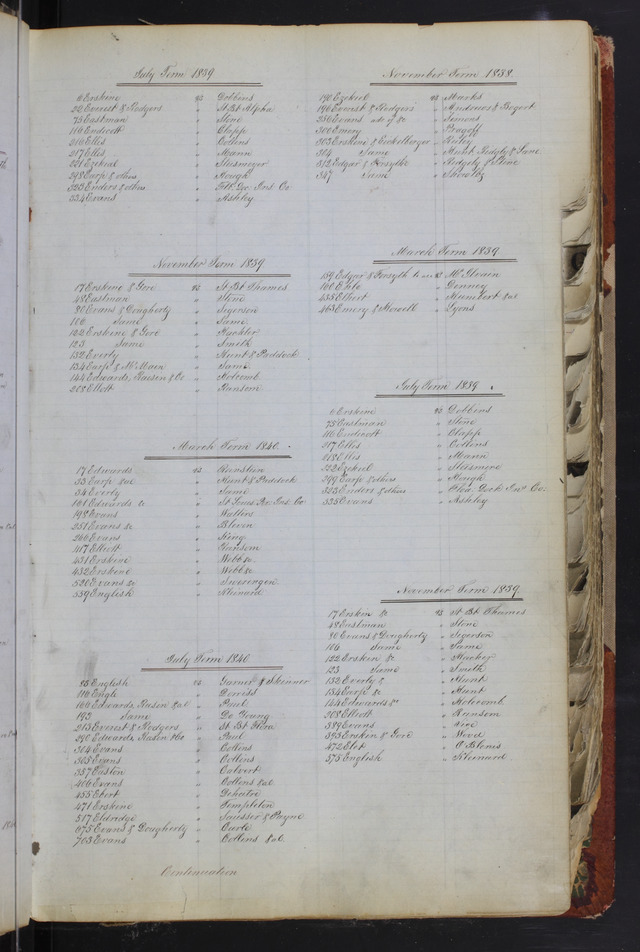 July Term 1839
6 Erskine vs Dobbins
20 Everest & Rodgers " St Bt Alpha
75 Eastman " Stine
116 Endicott " Clapp
216 Ellis " Collens
217 Ellis " Mann
221 Ezekiel "
298 Earp & others " Hough
323 Enders & others " Ins. Co.
334 Evans " Ashley
November Term 1839
17 Erskine & Gore vs St Bt Thames
48 Eastman " Stine
80 Evans & Dougherty " Segerson
106 Same " Same
122 Erskine & Gore "
123 Same " Smith
132 Everly " Hunt & Paddock
134 Earp & McMain " Same
144 Edwards, Rasin & Co " Holcomb
208 Elliott " Ransom
March Term 1840.
17 Edwards vs
33 Earp &al " Hunt & Paddock
54 Everly " Same
161 Edwards &c " St Louis Ins. Co
198 Evans " Walters
251 Evans &c " Blevin
266 Evans " King
417 Elliott " Ransom
431 Erskine " Webb &c
432 Erskine " Webb &c
520 Evans &c " Sweringen
559 English " Kleinard
July Term 1840
95 English vs Garner & Skinner
116 Engle "
160 Edwards, Rasin &al " Bust
193 Same " De Young
213 Everest & Rodgers " St Bt
290 Edwards, Rasin &Co "
304 Evans " Collens
305 Evans " Collens
337 Easton " Calvert
406 Evans " Collens &al
455 Ebert "
471 Erskine " Templeton
517 Eldridge " Payne
675 Evans & Dougherty " Carle
703 Evans " Collens &al
Continuation
November Term 1838.
190 Ezekiel vs Marks
196 Everest & Rodgers " Andrews & Bogert
250 Evans " Simons
300 Emery "
303 Erskine & Eichelberger " Risley
304 Same " Hunt Ridgly & Lane
312 Edgar & Forsythe " Ridgely & Stine
347 Same "
March Term 1839.
159 Edgar & Forsyth vs McIlvain
160 " Denney
455 Elbert " Humbert &al
463 Emery & Howell " Lyons
July Term 1839.
6 Erskine vs Dobbins
75 Eastman " Stine
116 Endicott " Clapp
217 Ellis " Collens
218 Ellis " Mann
222 Ezekiel "
299 Earp & others " Hough
325 Enders & others " Insr Co.
335 Evans " Ashley
November Term 1839
17 Erskin &c vs St Bt Thames
48 Eastman " Stine
80 Evans & Dougherty " Segerson
106 Same " Same
122 Erskin &c "
123 Same " Smith
132 Everly & " Hunt
134 Earp &c " Hunt
144 Edwards &c " Holcomb
208 Elliott " Ransom
389 Evans "
393 Erskin & Gore " Wood
472 " O'Blenis
575 English " Kleinard